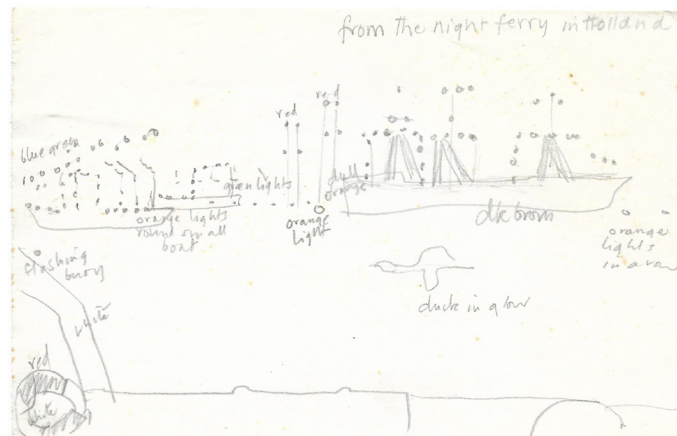 from the night ferry in Holland
red
red
blue green
green lights
dull
orange
orange lights
round on all
boat
orange
light
dk brown
orange
lights
in a row
flashing
buoy
duck in a low
white
red
white